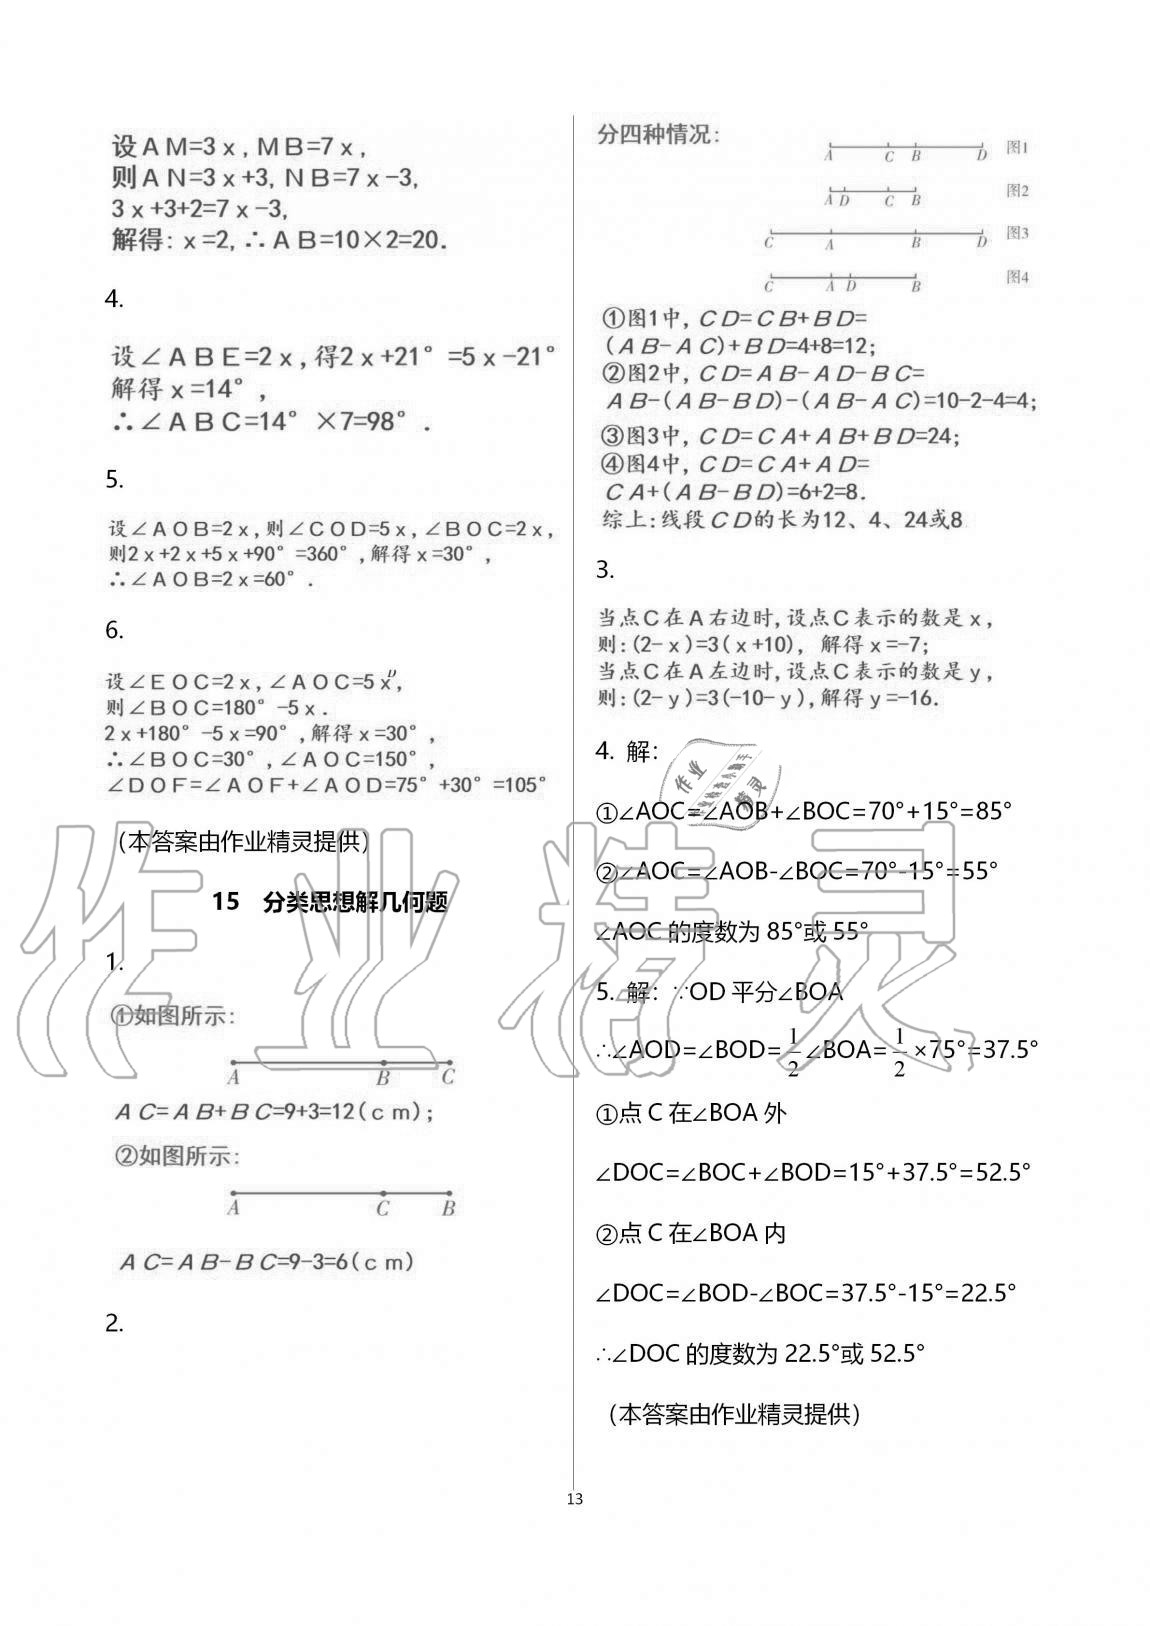 设AM=3x,MB=7x,
则AN=3x+3,NB=7x-3,
3x+3+2=7x-3,
解得:x=2,∴AB=10×2=20.
4.
设∠ABE=2x,得2x+21°=5x-21°
解得x=14°,
∴∠ABC=14°×7=98°.
5.
设∠AOB=2x,则∠COD=5x,∠BOC=2x,
则2x+2x+5x+90°=360°,解得x=30°,
∴∠AOB=2x=60°.
6.
设∠EOC=2x,∠AOC=5x,
则∠BOC=180°-5x.
2x+180°-5x=90°,解得x=30°,
∴∠BOC=30°,∠AOC=150°,
∠DOF=∠AOF+∠AOD=75°+30°=105°
（本答案由作业精灵提供）
15 分类思想解几何题
1.
①如图所示:
A B C
AC=AB+BC=9+3=12(cm);
②如图所示:
A C B
AC=AB-BC=9-3=6(cm)
2.
分四种情况:
A C B D 图1
A D C B 图2
C A B D 图3
C A D B 图4
①图1中,CD=CB+BD=
(AB-AC)+BD=4+8=12;
②图2中,CD=AB-AD-BC=
AB-(AB-BD)-(AB-AC)=10-2-4=4;
③图3中,CD=CA+AB+BD=24;
④图4中,CD=CA+AD=
CA+(AB-BD)=6+2=8.
综上:线段CD的长为12、4、24或8
3.
当点C在A右边时,设点C表示的数是x,
则:(2-x)=3(x+10),解得x=-7;
当点C在A左边时,设点C表示的数是y,
则:(2-y)=3(-10-y),解得y=-16.
4. 解：
①∠AOC=∠AOB+∠BOC=70°+15°=85°
②∠AOC=∠AOB-∠BOC=70°-15°=55°
∠AOC 的度数为 85°或 55°
5. 解：∵OD 平分∠BOA
∴∠AOD=∠BOD=1/2∠BOA=1/2×75°=37.5°
①点 C 在∠BOA 外
∠DOC=∠BOC+∠BOD=15°+37.5°=52.5°
②点 C 在∠BOA 内
∠DOC=∠BOD-∠BOC=37.5°-15°=22.5°
∴∠DOC 的度数为 22.5°或 52.5°
（本答案由作业精灵提供）
13
作业精灵
作业
精灵